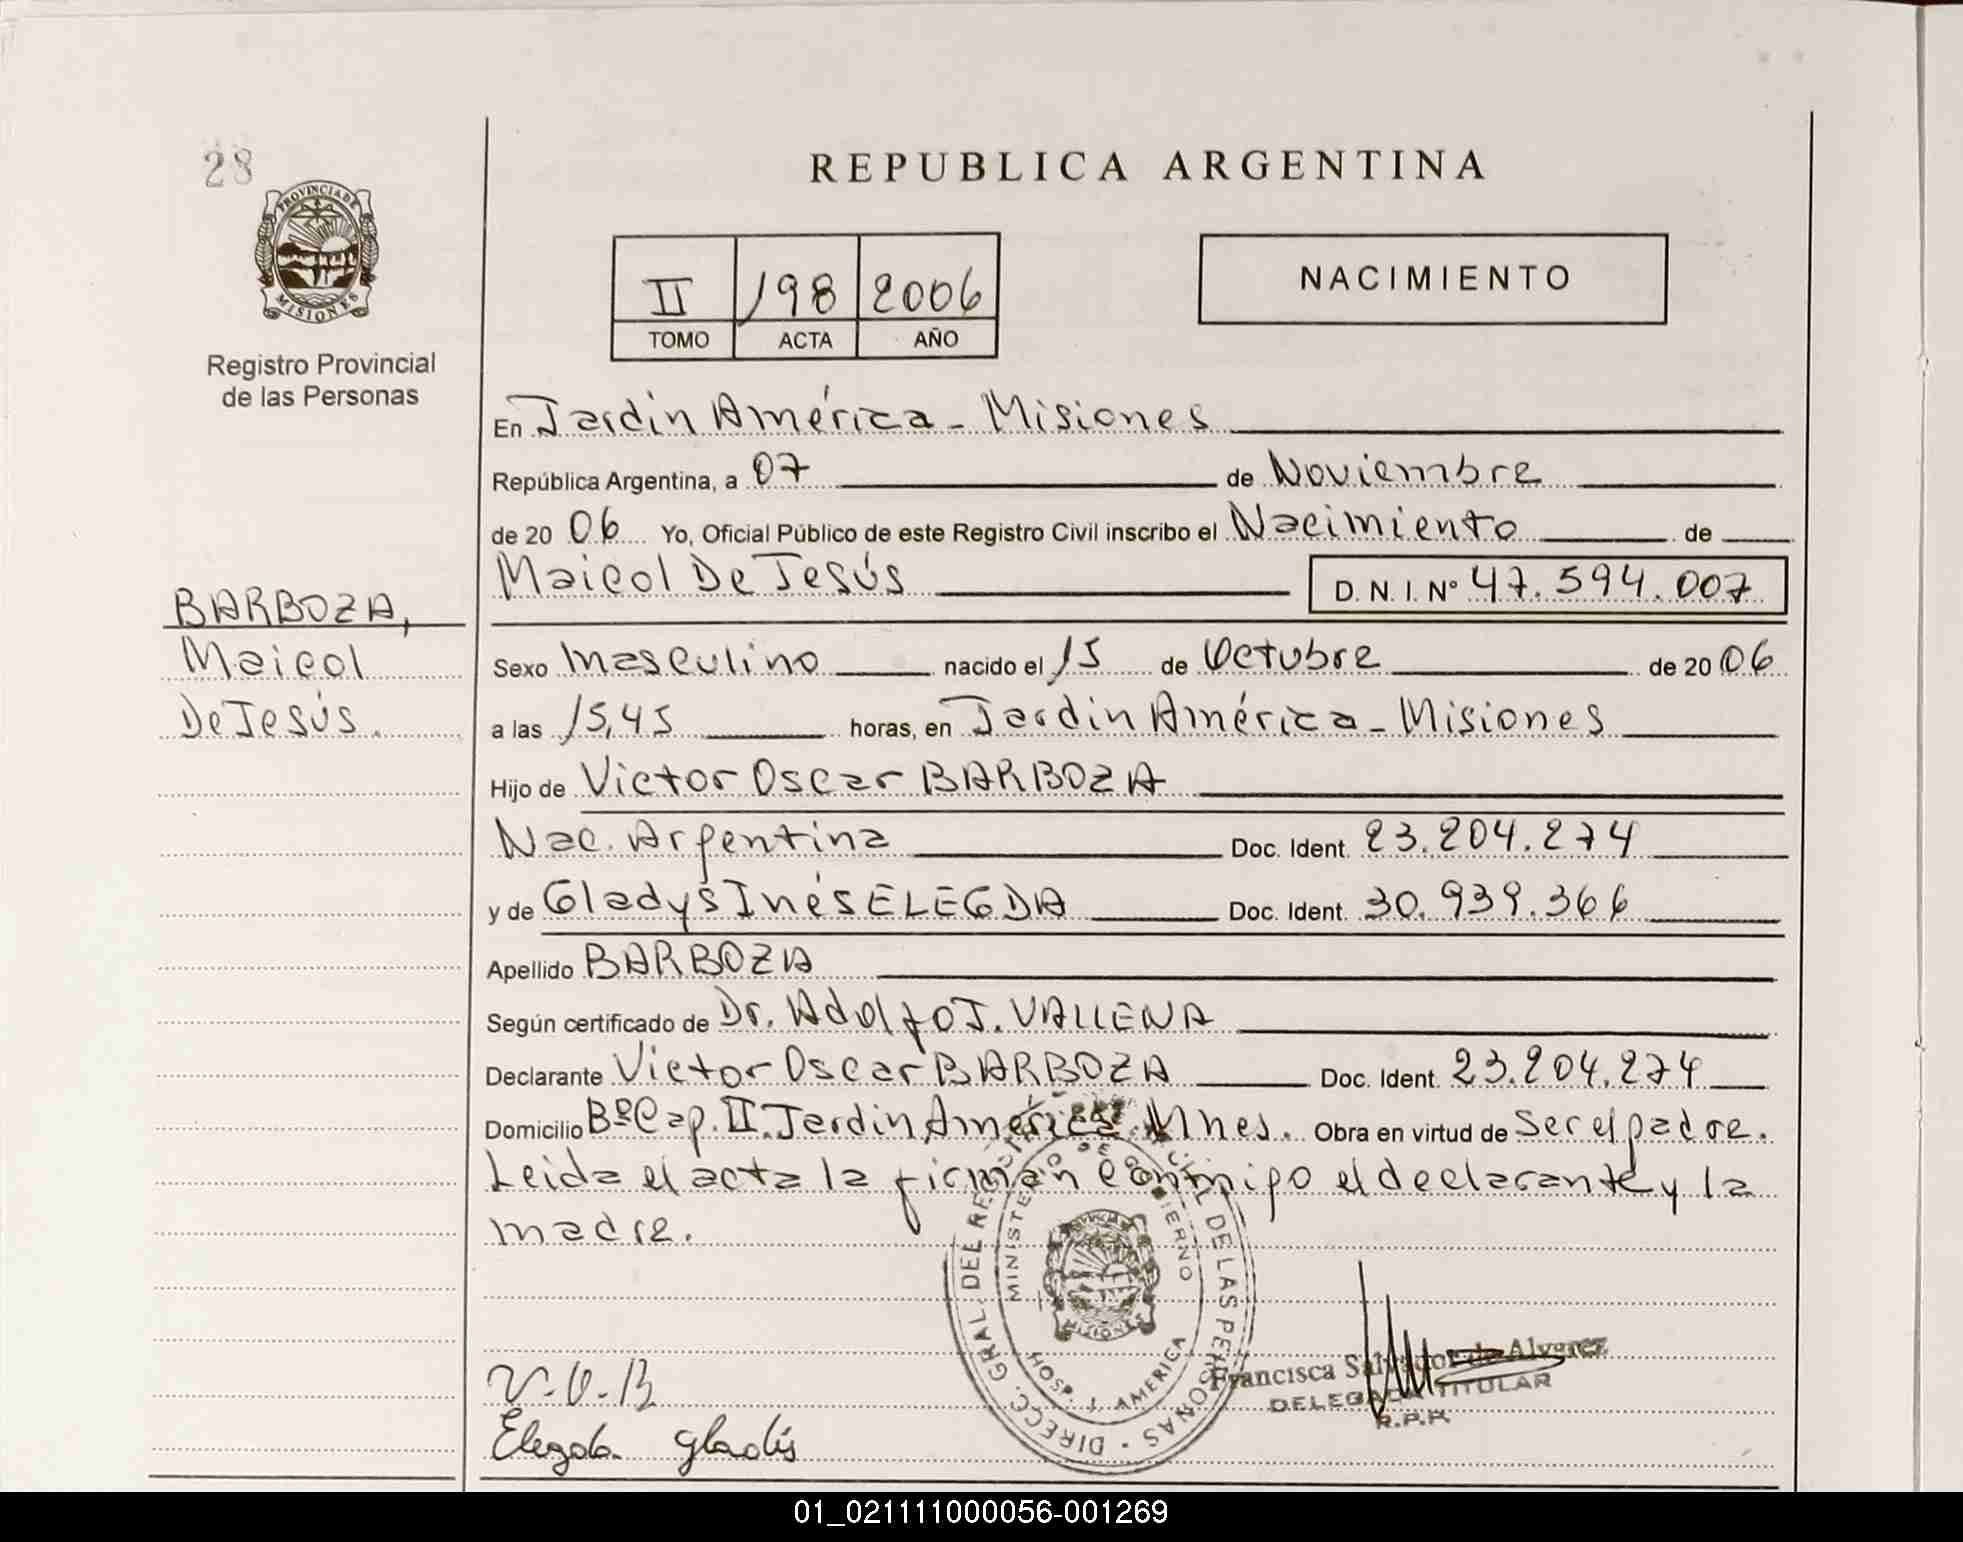 28
PROVINCIA DE
MISIONES
Registro Provincial
de las Personas
REPUBLICA ARGENTINA
II 198 2006
TOMO ACTA AÑO
NACIMIENTO
En Jardin América - Misiones
República Argentina, a 07 de Noviembre
de 20 06 Yo, Oficial Público de este Registro Civil inscribo el Nacimiento de
Maicol De Jesús D. N. I. Nº 47.594.007
BARBOZA,
Maicol
De Jesús.
Sexo Masculino nacido el 15 de Octubre de 20 06
a las 15,45 horas, en Jardin América - Misiones
Hijo de Victor Oscar BARBOZA
Nac. Argentina Doc. Ident. 23.204.274
y de Gladys Inés ELEGDA Doc. Ident. 30.939.366
Apellido BARBOZA
Según certificado de Dr. Adolfo J. VALLENA
Declarante Victor Oscar BARBOZA Doc. Ident. 23.204.274
Domicilio Bº Cap. II. Jardin América. Mnes. Obra en virtud de ser el padre.
Leida el acta la firman conmigo el declarante y la
madre.
DIRECC. GRAL. DEL DE LAS PERSONAS
MINISTERIO DE GOBIERNO
MISIONES
HOSP. J. AMERICA
Francisca Salvador de Alvarez
DELEGADA TITULAR
R.P.P.
V.O.B
Elegda Gladis
01_021111000056-001269